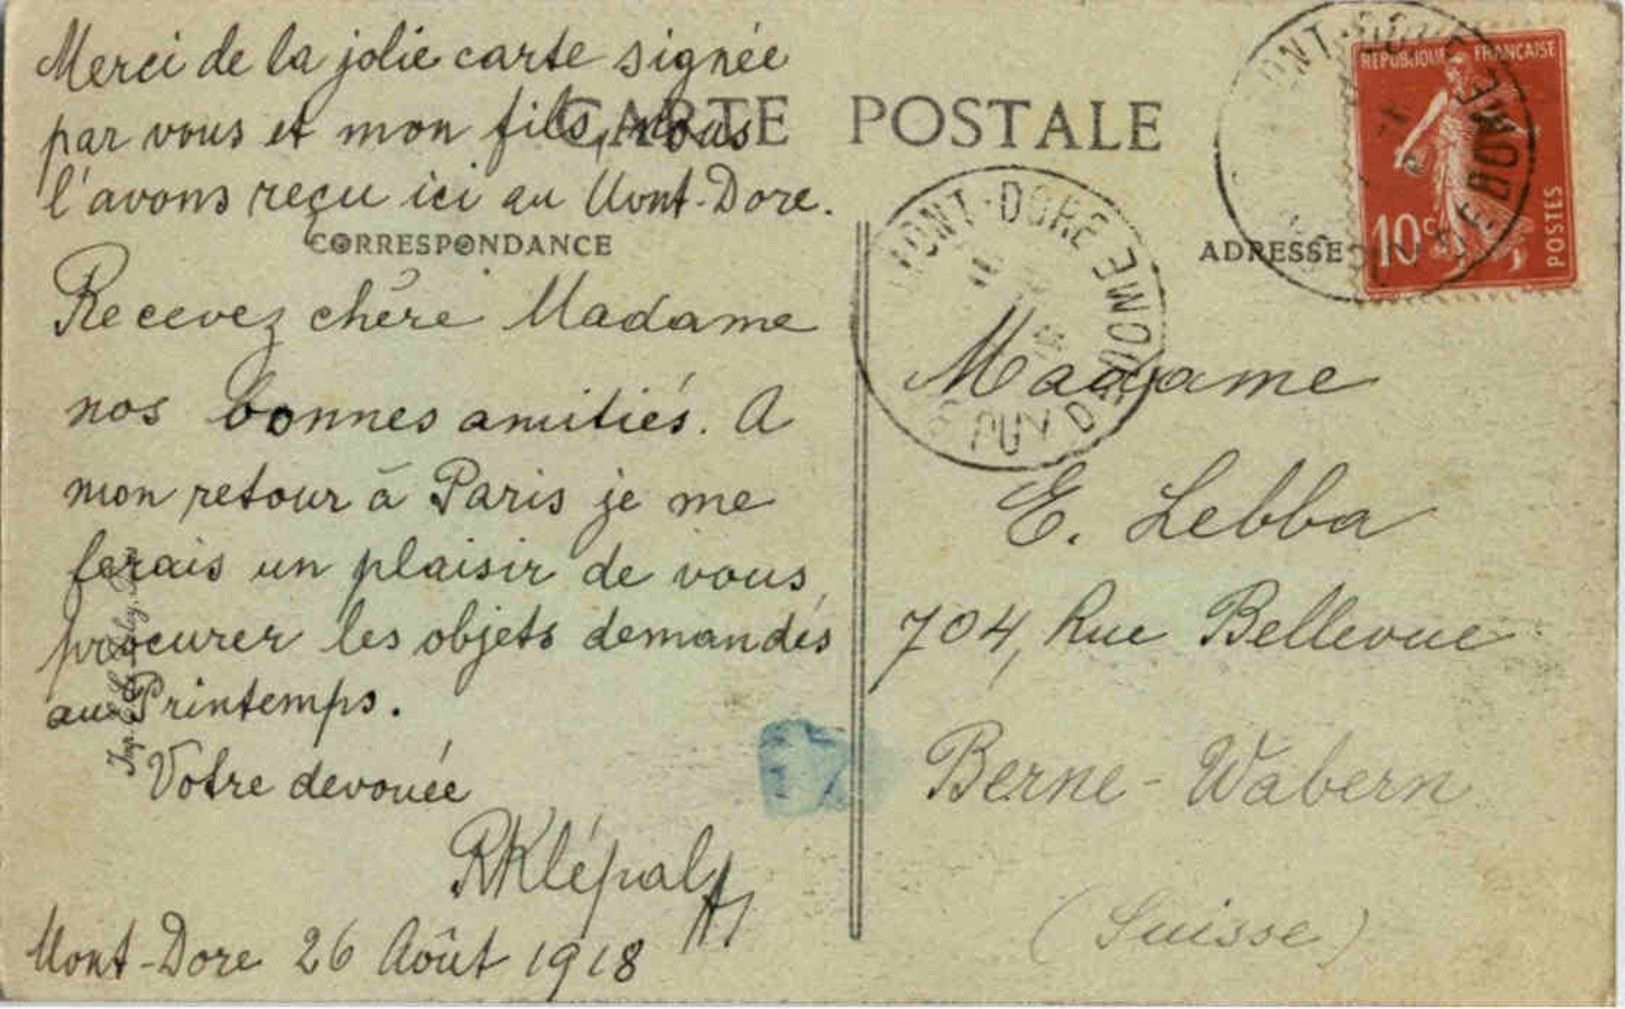 Merci de la jolie carte signée
par vous et mon fils, nous
l'avons reçu ici au Mont-Dore.
Recevez chère Madame
nos bonnes amitiés. A
mon retour à Paris je me
ferais un plaisir de vous
procurer les objets demandés
au Printemps.
Votre devouée
Mont-Dore 26 Août 1918
CARTE POSTALE
CORRESPONDANCE
ADRESSE
REPUBLIQUE FRANÇAISE
10c
POSTES
MONT-DORE
PUY DE DOME
Madame
E. Lebba
704, Rue Bellevue
Berne-Wabern
(Suisse)